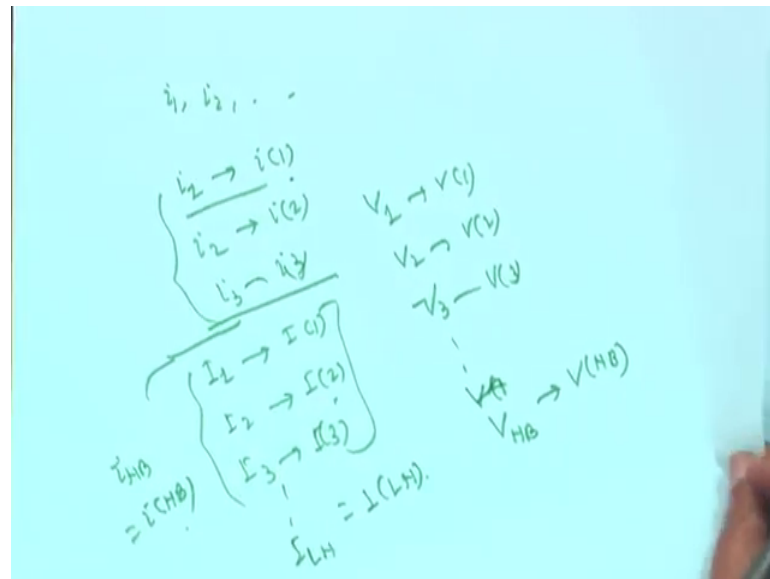 i₁, i₂, . .
i₁ → i(1)
i₂ → i(2)
i₃ → i(3)
I₁ → I(1)
I₂ → I(2)
I₃ → I(3)
I_LH = I(LH).
i_HB
= i(HB)
V₁ → V(1)
V₂ → V(2)
V₃ → V(3)
V_HB → V(HB)